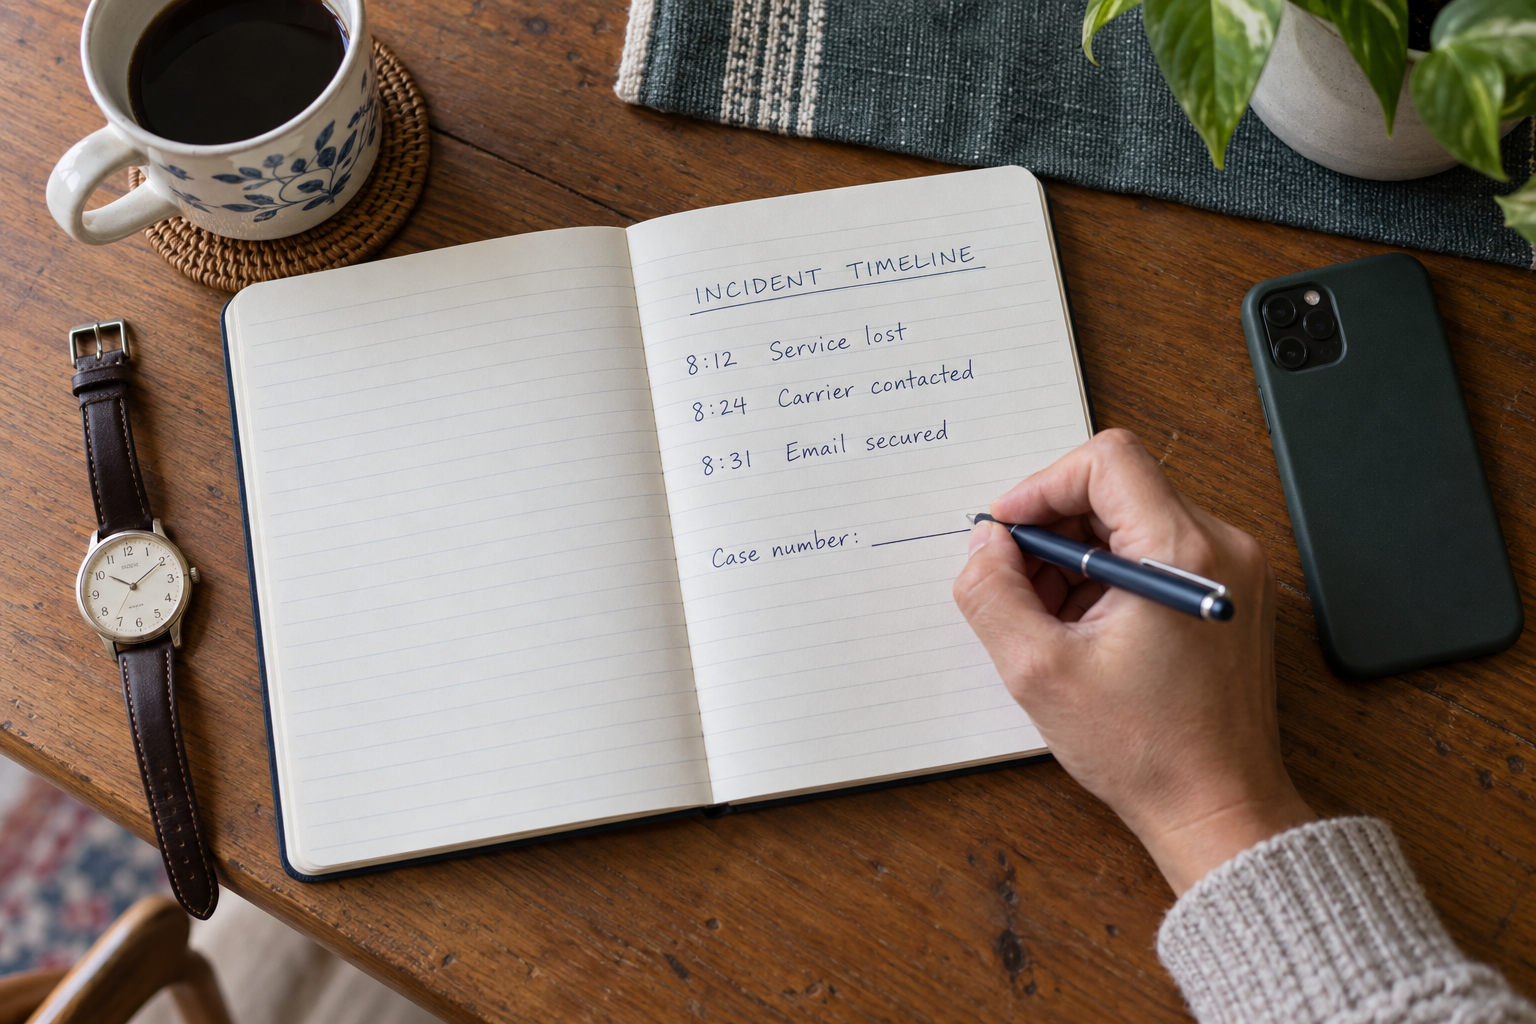 INCIDENT TIMELINE
8:12 Service lost
8:24 Carrier contacted
8:31 Email secured
Case number:
12
1
2
3
4
5
6
7
8
9
10
11